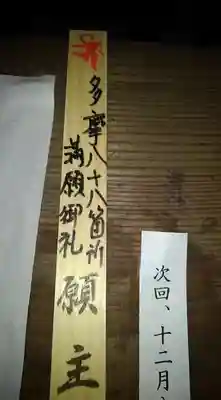 多摩八十八箇所
満願御礼
願主
次回、十二月